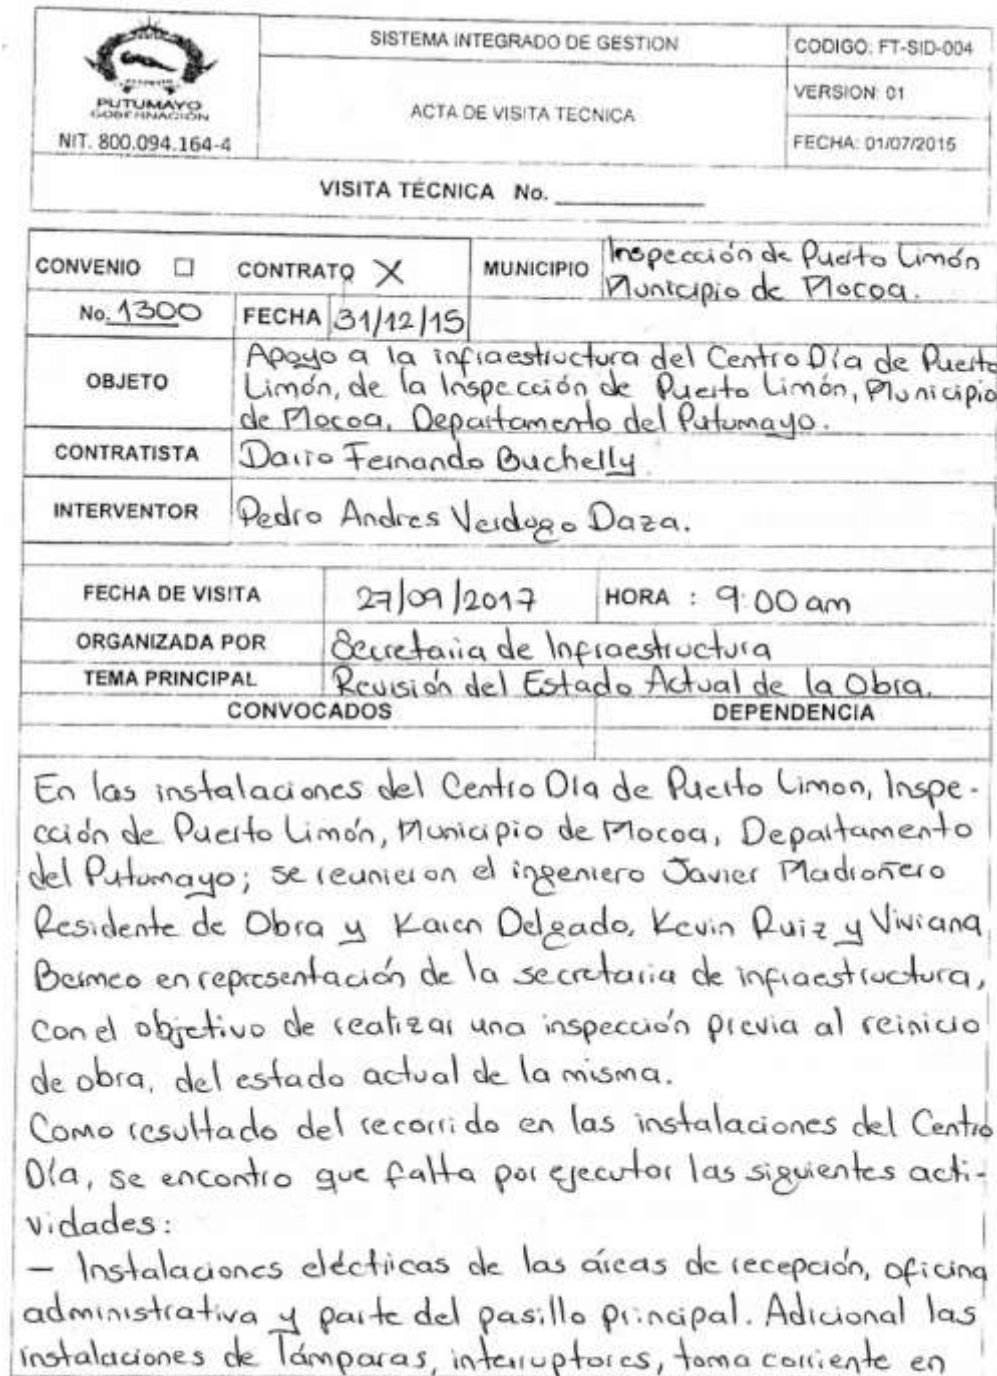 SISTEMA INTEGRADO DE GESTION
CODIGO: FT-SID-004
PUTUMAYO
GOBERNACIÓN
NIT. 800.094.164-4
ACTA DE VISITA TECNICA
VERSION: 01
FECHA: 01/07/2015
VISITA TÉCNICA No.
CONVENIO ☐ CONTRATO X MUNICIPIO Inspección de Puerto Limón
Municipio de Mocoa.
No. 1300 FECHA 31/12/15
OBJETO Apoyo a la infraestructura del Centro Día de Puerto
Limón, de la Inspección de Puerto Limón, Municipio
de Mocoa, Departamento del Putumayo.
CONTRATISTA Dario Fernando Buchelly
INTERVENTOR Pedro Andres Verdugo Daza.
FECHA DE VISITA 27/09/2017 HORA : 9:00 am
ORGANIZADA POR Secretaria de Infraestructura
TEMA PRINCIPAL Revisión del Estado Actual de la Obra.
CONVOCADOS DEPENDENCIA
En las instalaciones del Centro Día de Puerto Limon, Inspe-
cción de Puerto Limón, Municipio de Mocoa, Departamento
del Putumayo; se reunieron el ingeniero Javier Madroñero
Residente de Obra y Karen Delgado, Kevin Ruiz y Viviana
Bermeo en representación de la secretaria de infraestructura,
con el objetivo de realizar una inspección previa al reinicio
de obra, del estado actual de la misma.
Como resultado del recorrido en las instalaciones del Centro
Día, se encontro que falta por ejecutar las siguientes acti-
vidades:
— Instalaciones eléctricas de las áreas de recepción, oficina
administrativa y parte del pasillo principal. Adicional las
instalaciones de lámparas, interruptores, toma corriente en